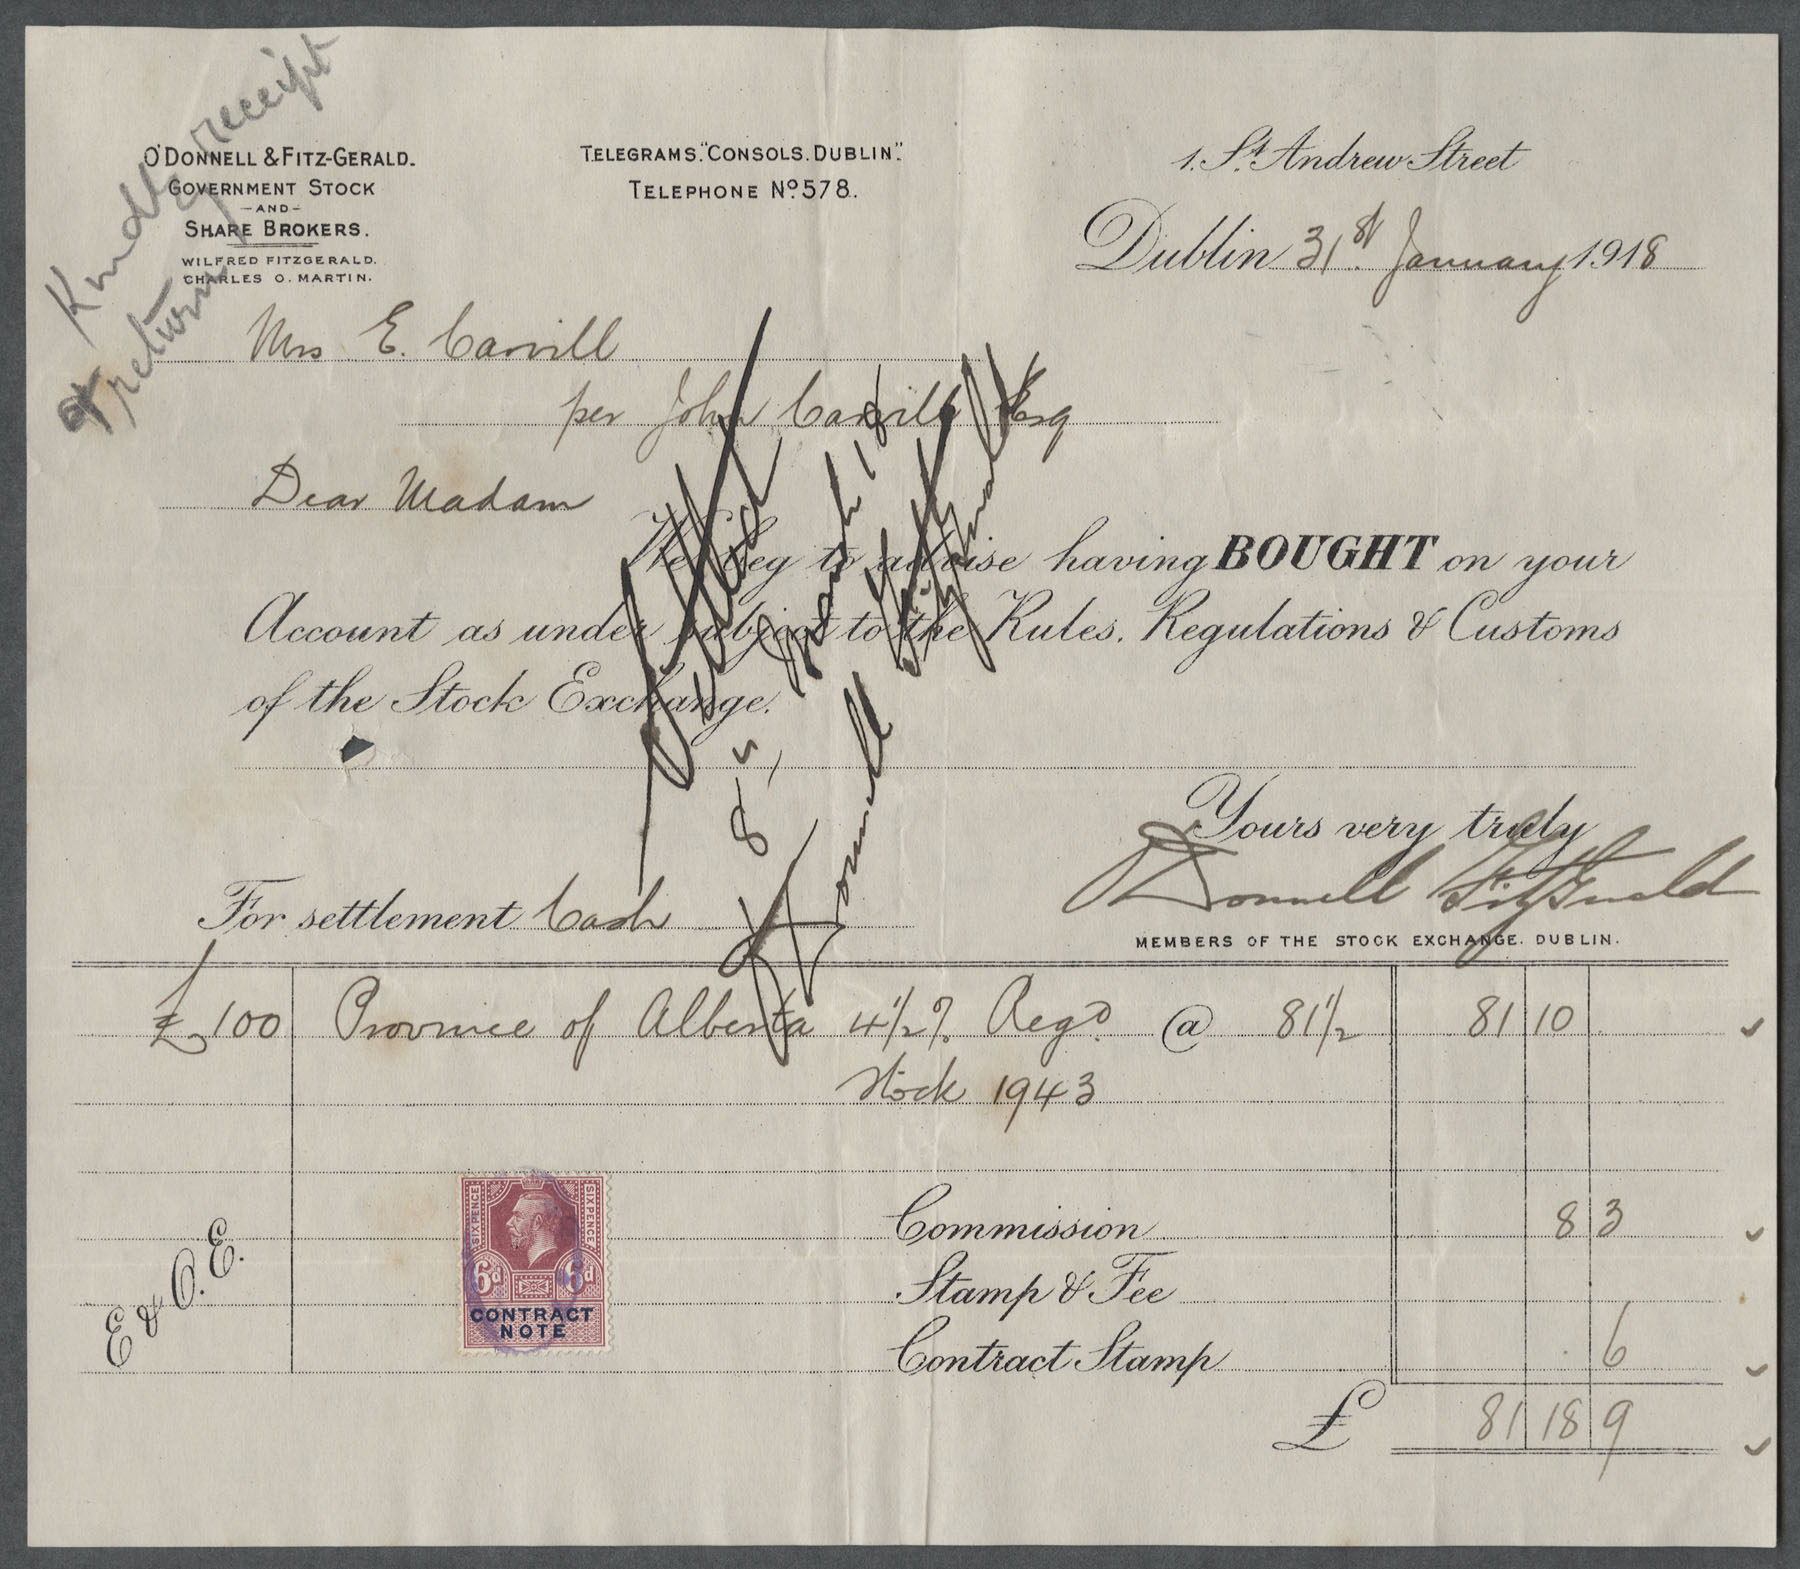 Kindly receipt
& return
O'DONNELL & FITZ-GERALD.
GOVERNMENT STOCK
-AND-
SHARE BROKERS.
WILFRED FITZGERALD.
CHARLES O. MARTIN.
TELEGRAMS. "CONSOLS. DUBLIN".
TELEPHONE Nº 578.
1. St. Andrew Street
Dublin 31st January 1918
Mrs E. Carvill
per John Carvill Esq
Dear Madam
We beg to advise having BOUGHT on your
Account as under subject to the Rules, Regulations & Customs
of the Stock Exchange.
Settled
8 March 18
O'Donnell Fitzgerald
Yours very truly
O'Donnell Fitzgerald
MEMBERS OF THE STOCK EXCHANGE. DUBLIN.
For settlement Cash
£100 Province of Alberta 4½% Regd @ 81½ 81 10
Stock 1943
SIXPENCE SIXPENCE
6d 6d
CONTRACT
NOTE
E & O. E.
Commission 8 3
Stamp & Fee
Contract Stamp 6
£ 81 18 9